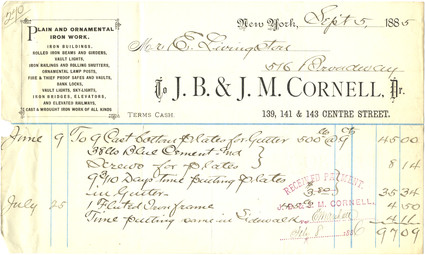 270
PLAIN AND ORNAMENTAL
IRON WORK.
IRON BUILDINGS,
ROLLED IRON BEAMS AND GIRDERS,
VAULT LIGHTS,
IRON RAILINGS AND ROLLING SHUTTERS,
ORNAMENTAL LAMP POSTS,
FIRE & THIEF PROOF SAFES AND VAULTS,
BANK LOCKS,
VAULT LIGHTS, SKY-LIGHTS,
IRON BRIDGES, ELEVATORS,
AND ELEVATED RAILWAYS,
CAST & WROUGHT IRON WORK OF ALL KINDS
New York, Sept 5, 1885
M E. Livingston
576 Broadway
To J. B. & J. M. CORNELL, Dr.
TERMS CASH
139, 141 & 143 CENTRE STREET.
June 9 To 9 Cast bottom plates for Gutter 500 lb @ 9¢ 45 00
38 lb Blue Cement
Screws for plates 8 14
9 3/10 Days time putting plates
in Gutter 35 34
July 25 1 Fluted Iron frame 4 50
Time putting same in Sidewalk 4 11
97 09
RECEIVED PAYMENT,
J. B. & J. M. CORNELL,